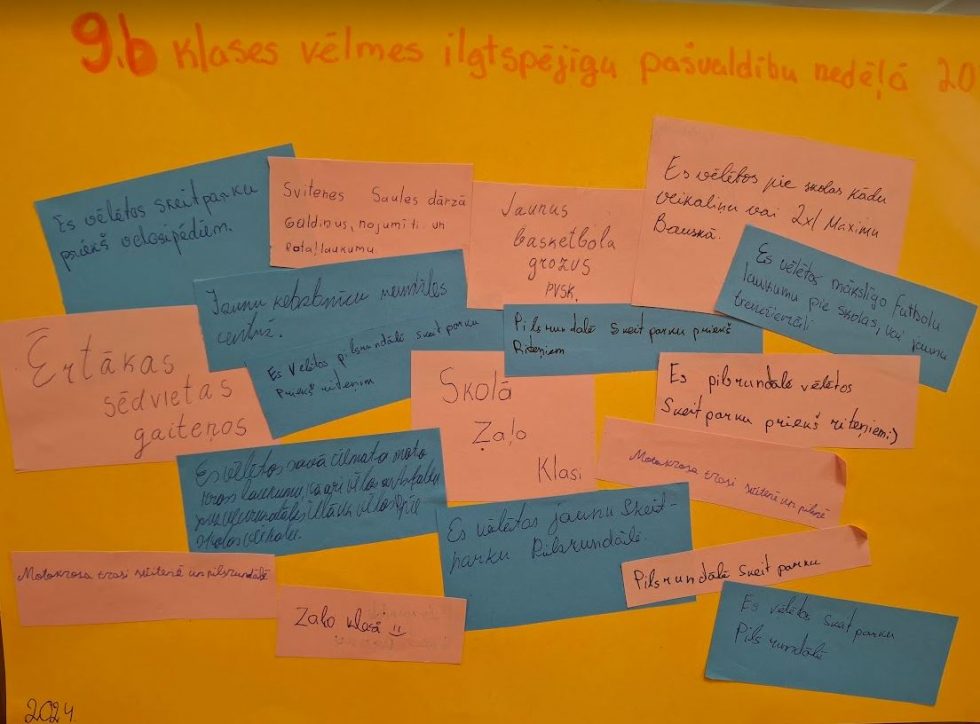 9.b klases vēlmes ilgtspējīgu pašvaldību nedēļā 20
Es vēlētos skeitparku
priekš velosipēdiem.
Svitenes Saules dārzā
galdiņus, nojumīti un
rotaļlaukumu.
Jaunus
basketbola
grozus
PVSK.
Es vēlētos pie skolas kādu
veikaliņu vai 2x1 Maximu
Bauskā.
Jaunu
centrā.
Es vēlētos mākslīgo futbolu
laukumu pie skolas, vai jaunu
Ērtākas
sēdvietas
gaiteņos
Es vēlētos pilsrundālē skeit parku
Priekš riteņiem
Pilsrundālē Skeit parku priekš
Riteņiem
Skolā
Zaļo
Klasi
Es pilsrundālē vēlētos
Skeitparku priekš riteņiem:)
Motokrosa trasi
Es vēlētos savā
Es vēlētos jaunu Skeit-
parku Pilsrundālē.
Motokrosa trasi svitenē un pilsrundālē
Zaļo klasi
Pilsrundālē Skeit parku
Es vēlētos skeit parku
Pils rundālē
2024